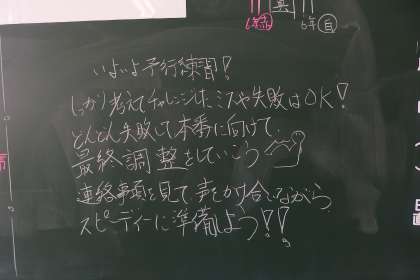 6年赤 6年白
いよいよ予行練習!
しっかり考えてチャレンジしたミスや失敗はOK!
どんどん失敗して本番に向けて、
最終調整をしていこう
連絡事項を見て、声をかけ合いながら、
スピーディーに準備しよう!!